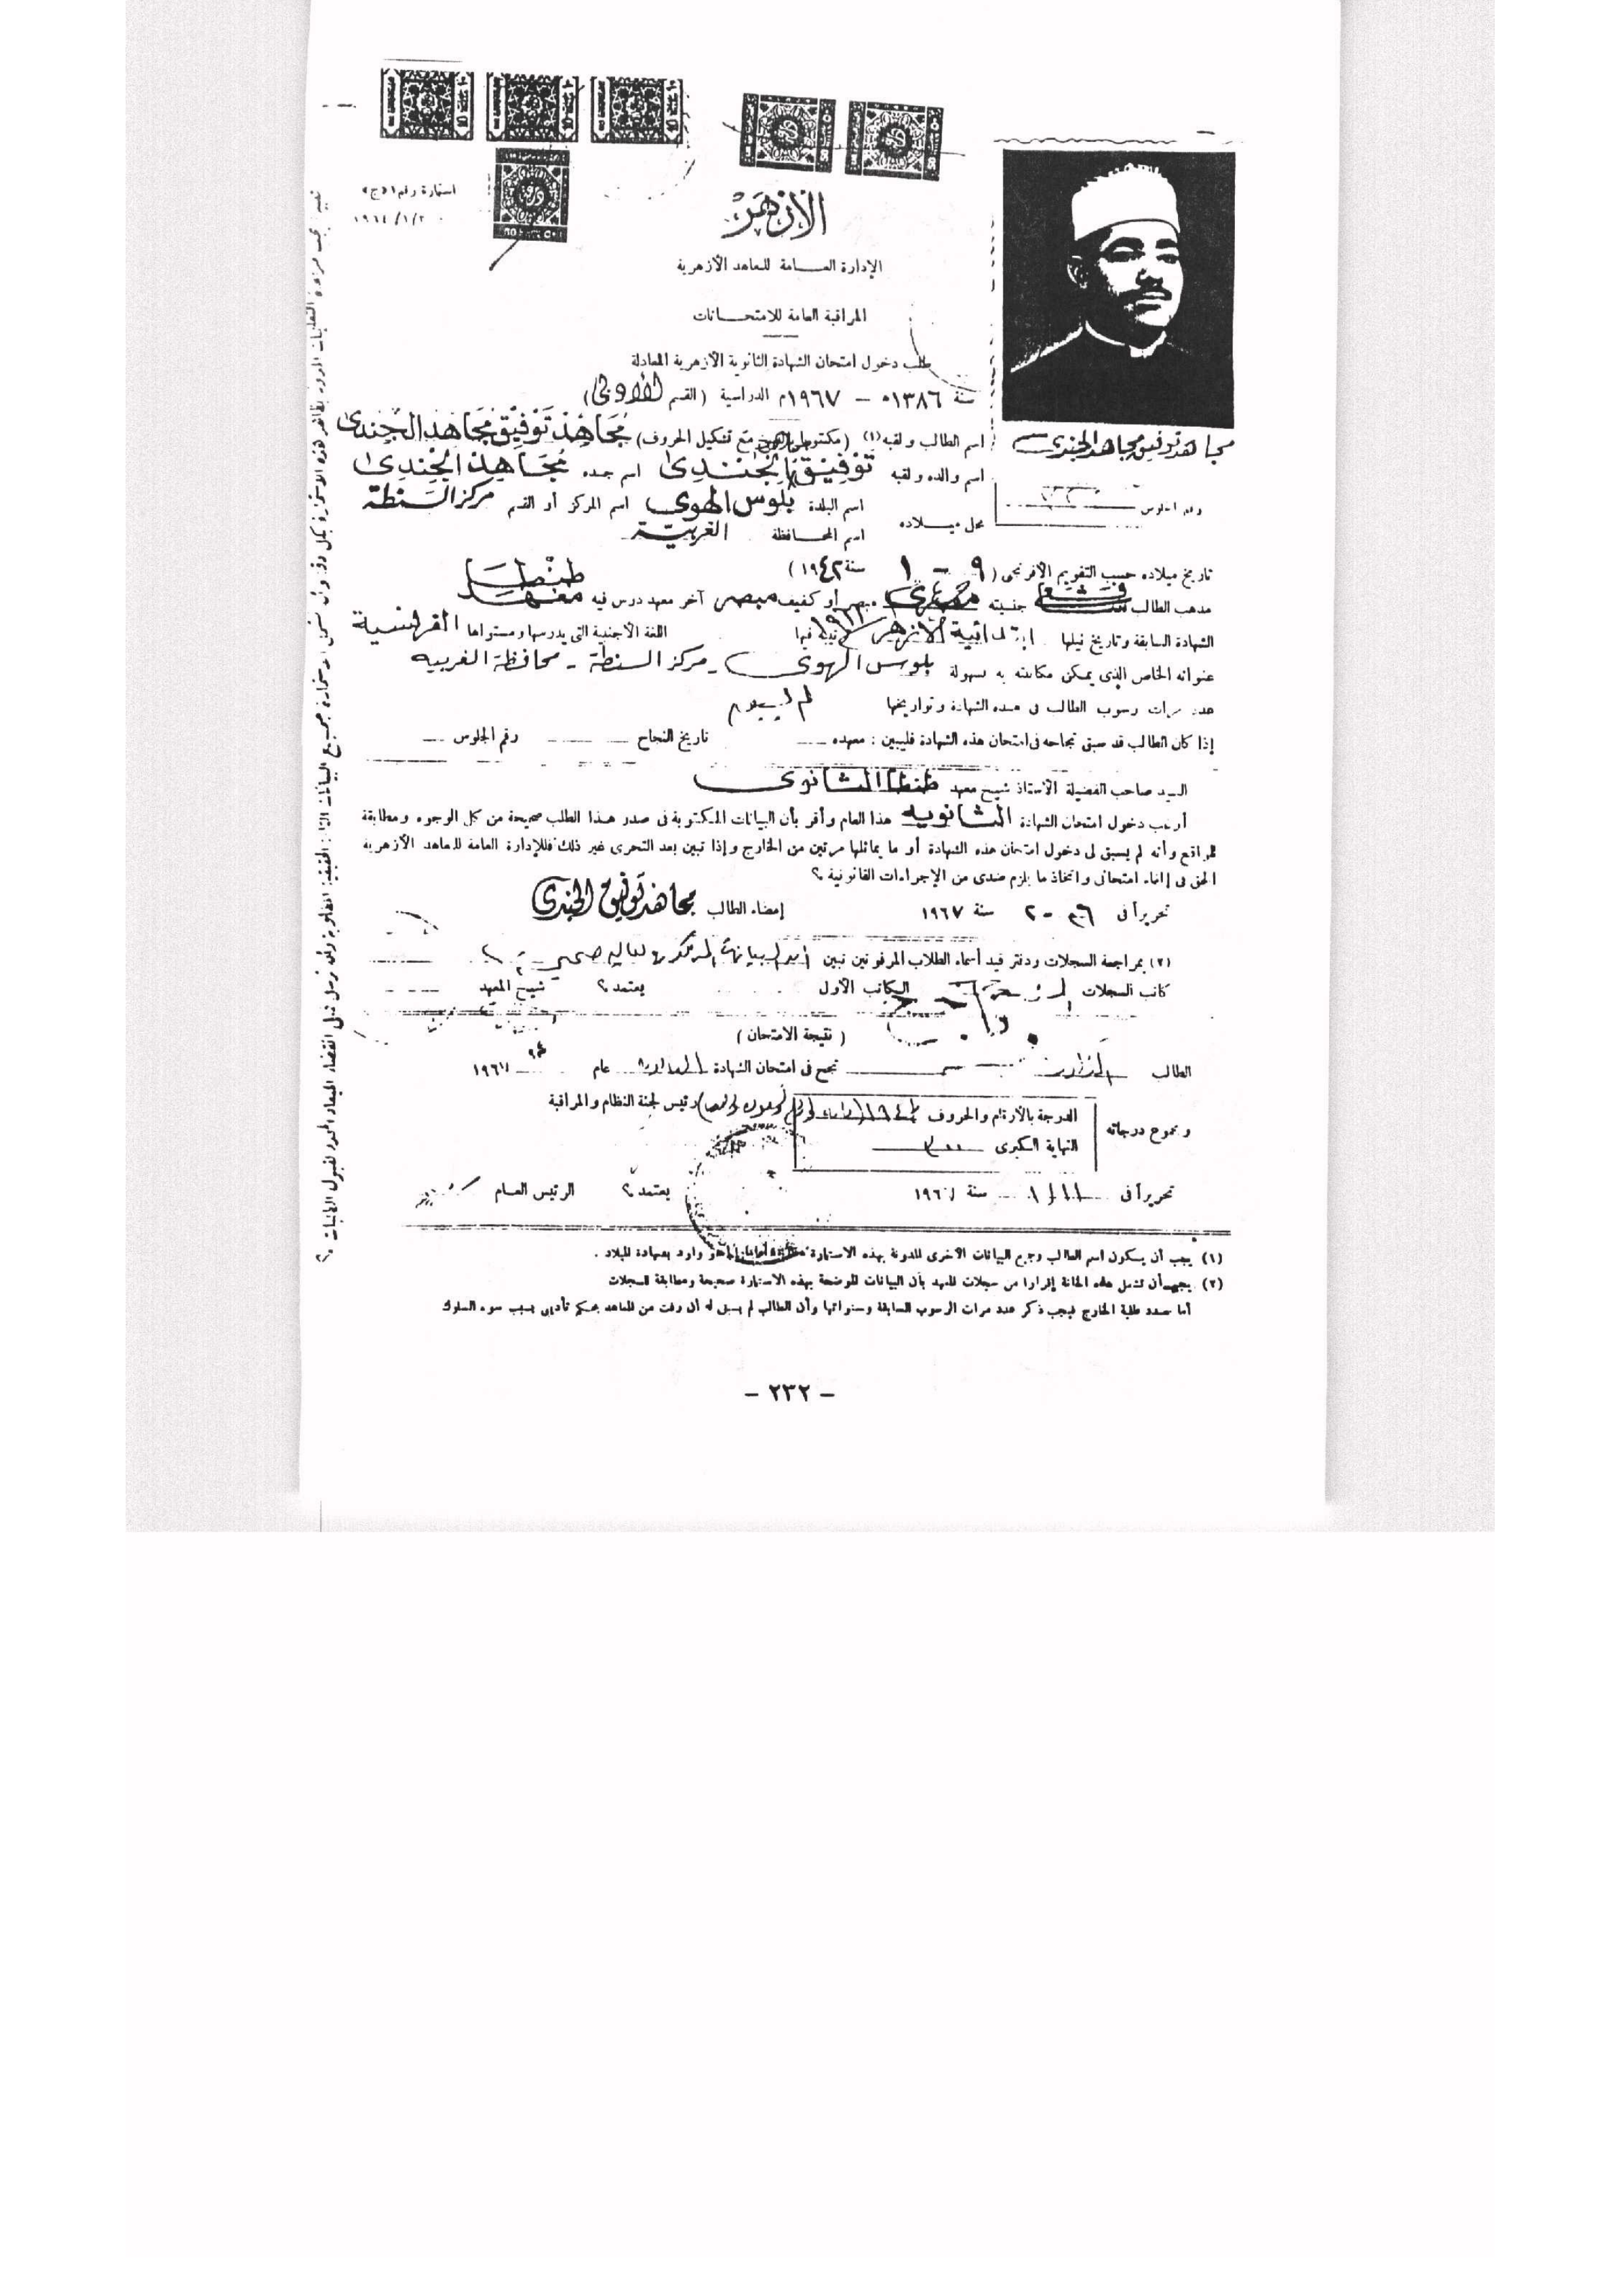 استمارة رقم ١ «ج»
الأزهر
الإدارة العامة للمعاهد الأزهرية
المراقبة العامة للامتحانات
طلب دخول امتحان الشهادة الثانوية الأزهرية المعادلة
سنة ١٣٨٦ه – ١٩٦٧م الدراسية (القسم الأدبى)
مجاهد توفيق مجاهد الجندى
اسم الطالب ولقبه (١) (مكتوبا مع تشكيل الحروف) مُجَاهِدْ تَوْفِيْق مُجَاهد الجُندى
اسم والده ولقبه تَوْفِيْق الجُنْدِى اسم جده مُجَاهِدْ الجُندِى
رقم الجلوس
محل ميلاده اسم البلدة بلوس الهوى اسم المركز أو القسم مركز السنطة
اسم المحافظة الغربيّة
تاريخ ميلاده حسب التقويم الأفرنجى (٩ – ١ سنة ١٩٤٢)
مذهب الطالب جنسيته مصرى مبصر أو كفيف مبصر آخر معهد درس فيه معهد طنطا
الشهادة السابقة وتاريخ نيلها ابتدائية الأزهر اللغة الأجنبية التى يدرسها ومستواها الفرنسية
عنوانه الخاص الذى يمكن مكاتبته به بسهولة بلوس الهوى – مركز السنطة – محافظة الغربيه
عدد مرات رسوب الطالب فى هذه الشهادة وتواريخها
إذا كان الطالب قد سبق نجاحه فى امتحان هذه الشهادة فليبين : معهده تاريخ النجاح رقم الجلوس
السيد صاحب الفضيلة الأستاذ شيخ معهد طنطا الثانوى
أرغب دخول امتحان الشهادة الثانويه هذا العام وأقر بأن البيانات المكتوبة فى صدر هذا الطلب صحيحة من كل الوجوه ومطابقة
للواقع وأنه لم يسبق لى دخول امتحان هذه الشهادة أو ما يماثلها مرتين من الخارج وإذا تبين بعد التحرى غير ذلك فللإدارة العامة للمعاهد الأزهرية
الحق فى إلغاء امتحانى واتخاذ ما يلزم ضدى من الإجراءات القانونية ؟
تحريراً فى ٢ سنة ١٩٦٧ إمضاء الطالب مجاهد توفيق الجندى
(٢) بمراجعة السجلات ودفتر قيد أسماء الطلاب المرفوتين تبين
كاتب السجلات الكاتب الأول يعتمد ؟ شيخ المعهد
(نتيجة الامتحان)
الطالب نجح فى امتحان الشهادة عام ١٩٦٧
ومجموع درجاته الدرجة بالأرقام والحروف رئيس لجنة النظام والمراقبة
النهاية الكبرى
تحريراً فى سنة ١٩٦ يعتمد ؟ الرئيس العام
(١) يجب أن يكون اسم الطالب وجميع البيانات الأخرى المدونة بهذه الاستمارة وارد بشهادة الميلاد .
(٢) يجب أن تشمل هذه الخانة إقرارا من سجلات المعهد بأن البيانات الموضحة بهذه الاستمارة صحيحة ومطابقة للسجلات
أما طلبة الخارج فيجب ذكر عدد مرات الرسوب السابقة وسنواتها وأن الطالب لم يسبق له أن رفت من المعاهد بحكم تأديبى بسبب سوء السلوك
– ٢٣٢ –